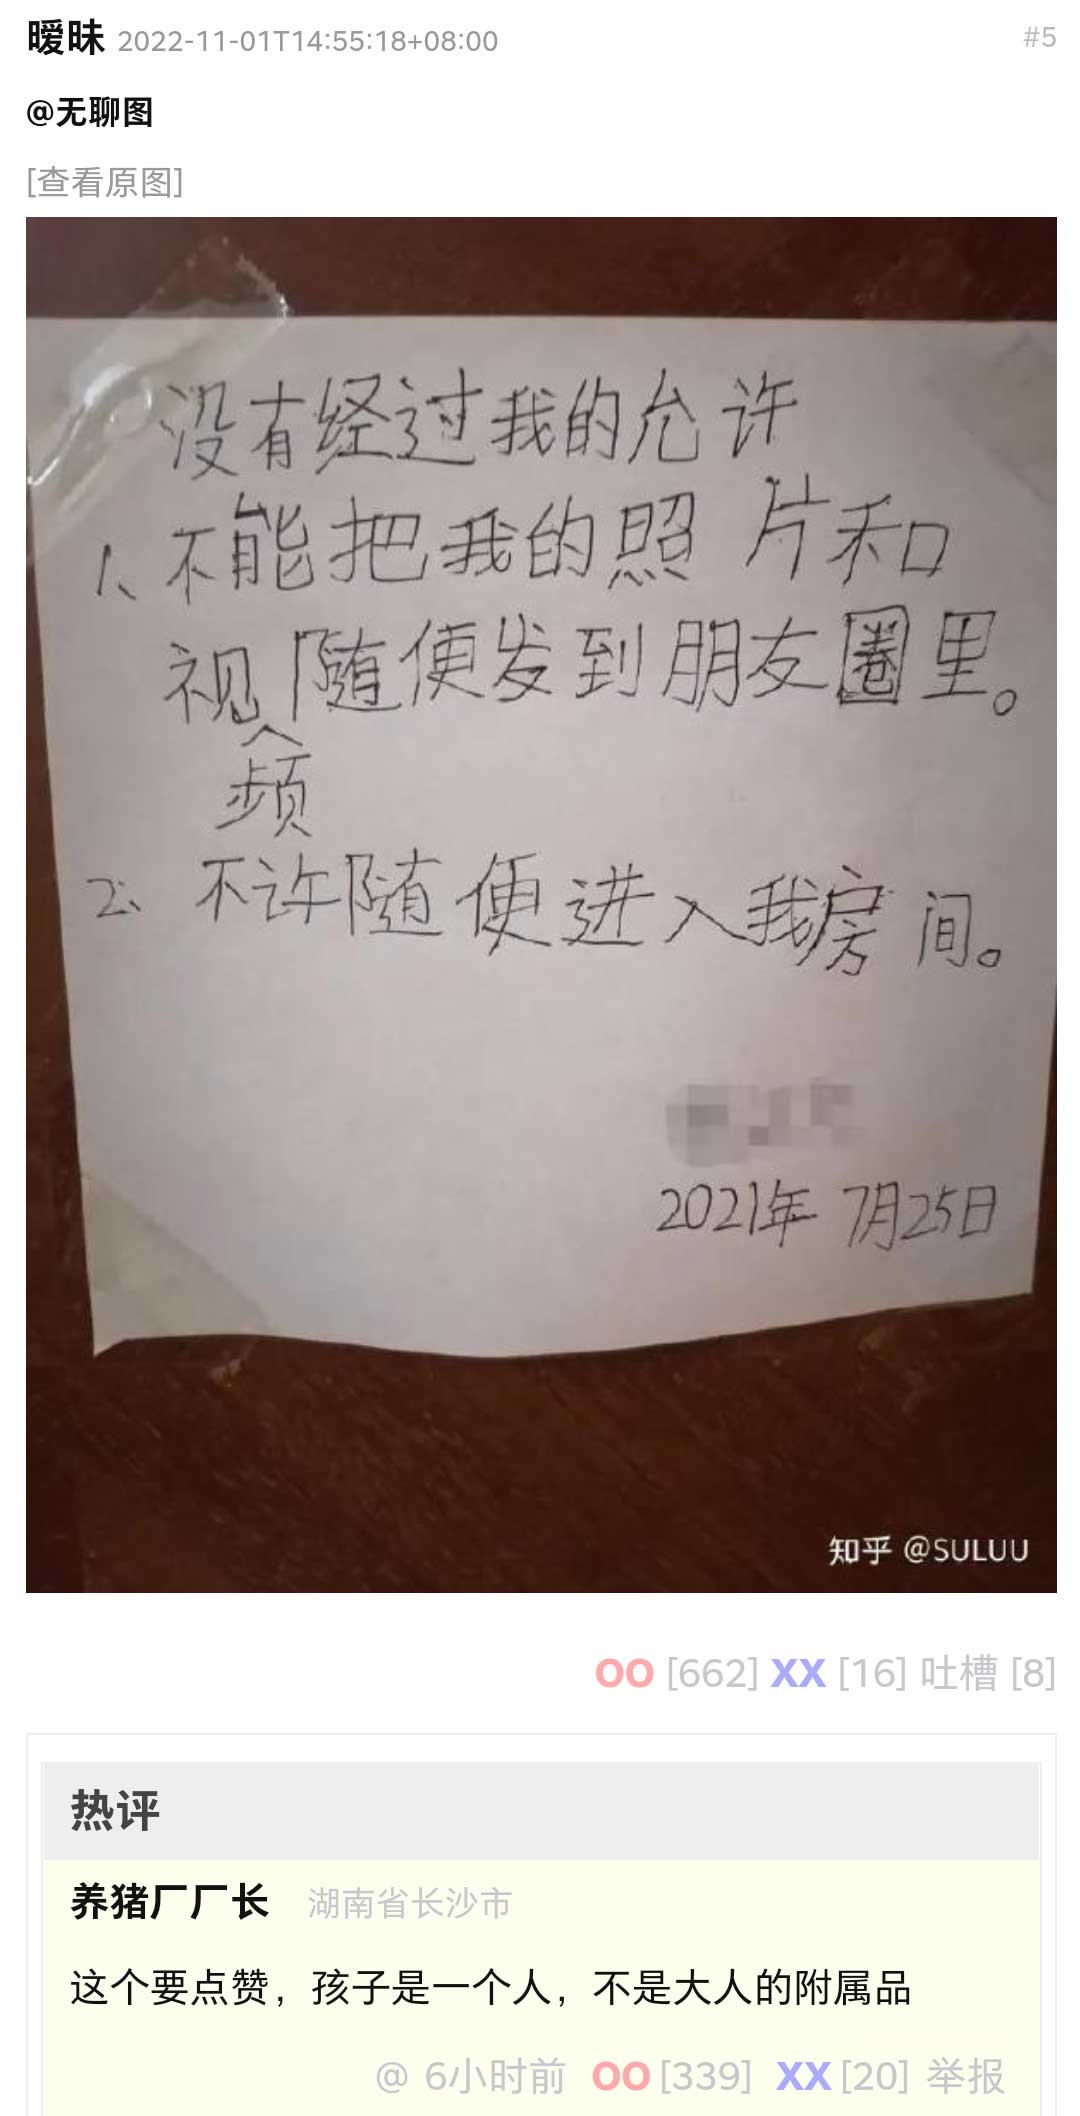 暧昧 2022-11-01T14:55:18+08:00 #5
@无聊图
[查看原图]
没有经过我的允许
1、不能把我的照片和
视频随便发到朋友圈里。
2、不许随便进入我房间。
2021年7月25日
知乎 @SULUU
OO [662] XX [16] 吐槽 [8]
热评
养猪厂厂长 湖南省长沙市
这个要点赞，孩子是一个人，不是大人的附属品
@ 6小时前 OO [339] XX [20] 举报